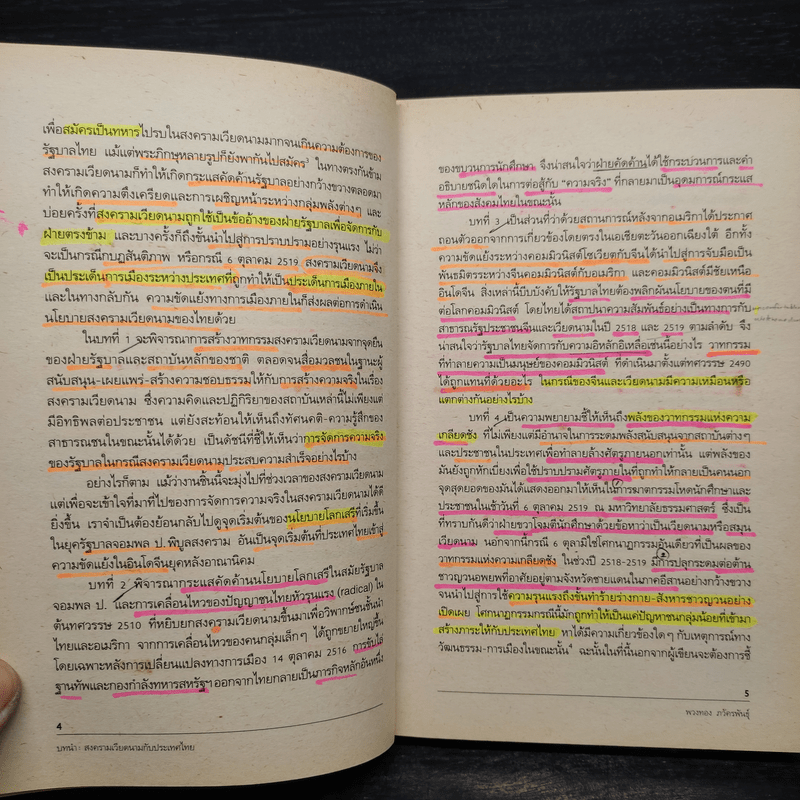 เพื่อสมัครเป็นทหารไปรบในสงครามเวียดนามมากจนเกินความต้องการของ
รัฐบาลไทย แม้แต่พระภิกษุหลายรูปก็ยังพากันไปสมัคร³ ในทางตรงกันข้าม
สงครามเวียดนามก็ทำให้เกิดกระแสคัดค้านรัฐบาลอย่างกว้างขวางตลอดมา
ทำให้เกิดความตึงเครียดและการเผชิญหน้าระหว่างกลุ่มพลังต่างๆ และ
บ่อยครั้งที่สงครามเวียดนามถูกใช้เป็นข้ออ้างของฝ่ายรัฐบาลเพื่อจัดการกับ
ฝ่ายตรงข้าม และบางครั้งก็ถึงขั้นนำไปสู่การปราบปรามอย่างรุนแรง ไม่ว่า
จะเป็นกรณีกบฏสันติภาพ หรือกรณี 6 ตุลาคม 2519 สงครามเวียดนามจึง
เป็นประเด็นการเมืองระหว่างประเทศที่ถูกทำให้เป็นประเด็นการเมืองภายใน
และในทางกลับกัน ความขัดแย้งทางการเมืองภายในก็ส่งผลต่อการดำเนิน
นโยบายสงครามเวียดนามของไทยด้วย
ในบทที่ 1 จะพิจารณาการสร้างวาทกรรมสงครามเวียดนามจากจุดยืน
ของฝ่ายรัฐบาลและสถาบันหลักของชาติ ตลอดจนสื่อมวลชนในฐานะผู้
สนับสนุน-เผยแพร่-สร้างความชอบธรรมให้กับการสร้างความจริงในเรื่อง
สงครามเวียดนาม ซึ่งความคิดและปฏิกิริยาของสถาบันเหล่านี้ไม่เพียงแต่
มีอิทธิพลต่อประชาชน แต่ยังสะท้อนให้เห็นถึงทัศนคติ-ความรู้สึกของ
สาธารณชนในขณะนั้นได้ด้วย เป็นดัชนีที่ชี้ให้เห็นว่าการจัดการความจริง
ของรัฐบาลในกรณีสงครามเวียดนามประสบความสำเร็จอย่างไรบ้าง
อย่างไรก็ตาม แม้ว่างานชิ้นนี้จะมุ่งไปที่ช่วงเวลาของสงครามเวียดนาม
แต่เพื่อจะเข้าใจที่มาที่ไปของการจัดการความจริงในสงครามเวียดนามได้ดี
ยิ่งขึ้น เราจำเป็นต้องย้อนกลับไปดูจุดเริ่มต้นของนโยบายโลกเสรีที่เริ่มขึ้น
ในยุครัฐบาลจอมพล ป.พิบูลสงคราม อันเป็นจุดเริ่มต้นที่ประเทศไทยเข้าสู่
ความขัดแย้งในอินโดจีนยุคหลังอาณานิคม
บทที่ 2 พิจารณากระแสคัดค้านนโยบายโลกเสรีในสมัยรัฐบาล
จอมพล ป. และการเคลื่อนไหวของปัญญาชนไทยหัวรุนแรง (radical) ใน
ต้นทศวรรษ 2510 ที่หยิบยกสงครามเวียดนามขึ้นมาเพื่อวิพากษ์ชนชั้นนำ
ไทยและอเมริกา จากการเคลื่อนไหวของคนกลุ่มเล็กๆ ได้ถูกขยายใหญ่ขึ้น
โดยเฉพาะหลังการเปลี่ยนแปลงทางการเมือง 14 ตุลาคม 2516 การขับไล่
ฐานทัพและกองกำลังทหารสหรัฐฯ ออกจากไทยกลายเป็นภารกิจหลักอันหนึ่ง
4
บทนำ: สงครามเวียดนามกับประเทศไทย
ของขบวนการนักศึกษา จึงน่าสนใจว่าฝ่ายคัดค้านได้ใช้กระบวนการและคำ
อธิบายชนิดใดในการต่อสู้กับ "ความจริง" ที่กลายมาเป็นอุดมการณ์กระแส
หลักของสังคมไทยในขณะนั้น
บทที่ 3 เป็นส่วนที่ว่าด้วยสถานการณ์หลังจากอเมริกาได้ประกาศ
ถอนตัวออกจากการเกี่ยวข้องโดยตรงในเอเชียตะวันออกเฉียงใต้ อีกทั้ง
ความขัดแย้งระหว่างคอมมิวนิสต์โซเวียตกับจีนได้นำไปสู่การจับมือเป็น
พันธมิตรระหว่างจีนคอมมิวนิสต์กับอเมริกา และคอมมิวนิสต์มีชัยเหนือ
อินโดจีน สิ่งเหล่านี้บีบบังคับให้รัฐบาลไทยต้องพลิกผันนโยบายของตนที่มี
ต่อโลกคอมมิวนิสต์ โดยไทยได้สถาปนาความสัมพันธ์อย่างเป็นทางการกับ
สาธารณรัฐประชาชนจีนและเวียดนามในปี 2518 และ 2519 ตามลำดับ จึง
น่าสนใจว่ารัฐบาลไทยจัดการกับความอิหลักอิเหลื่อเช่นนี้อย่างไร วาทกรรม
ที่ทำลายความเป็นมนุษย์ของคอมมิวนิสต์ ที่ดำเนินมาตั้งแต่ทศวรรษ 2490
ได้ถูกแทนที่ด้วยอะไร ในกรณีของจีนและเวียดนามมีความเหมือนหรือ
แตกต่างกันอย่างไรบ้าง
บทที่ 4 เป็นความพยายามชี้ให้เห็นถึงพลังของวาทกรรมแห่งความ
เกลียดชัง ที่ไม่เพียงแต่มีอำนาจในการระดมพลังสนับสนุนจากสถาบันต่างๆ
และประชาชนในประเทศเพื่อทำลายล้างศัตรูภายนอกเท่านั้น แต่พลังของ
มันยังถูกหักเบี่ยงเพื่อใช้ปราบปรามศัตรูภายในที่ถูกทำให้กลายเป็นคนนอก
จุดสุดยอดของมันได้แสดงออกมาให้เห็นในการฆาตกรรมโหดนักศึกษาและ
ประชาชนในเช้าวันที่ 6 ตุลาคม 2519 ณ มหาวิทยาลัยธรรมศาสตร์ ซึ่งเป็น
ที่ทราบกันดีว่าฝ่ายขวาโจมตีนักศึกษาด้วยข้อหาว่าเป็นเวียดนามหรือสมุน
เวียดนาม นอกจากนี้กรณี 6 ตุลามิใช่โศกนาฏกรรมอันเดียวที่เป็นผลของ
วาทกรรมแห่งความเกลียดชัง ในช่วงปี 2518-2519 มีการปลุกระดมต่อต้าน
ชาวญวนอพยพที่อาศัยอยู่ตามจังหวัดชายแดนในภาคอีสานอย่างกว้างขวาง
จนนำไปสู่การใช้ความรุนแรงถึงขั้นทำร้ายร่างกาย-สังหารชาวญวนอย่าง
เปิดเผย โศกนาฏกรรมกรณีนี้มักถูกทำให้เป็นแค่ปัญหาชนกลุ่มน้อยที่เข้ามา
สร้างภาระให้กับประเทศไทย หาได้มีความเกี่ยวข้องใดๆ กับเหตุการณ์ทาง
วัฒนธรรม-การเมืองในขณะนั้น⁴ ฉะนั้นในที่นี้นอกจากผู้เขียนจะต้องการชี้
5
พวงทอง ภวัครพันธุ์